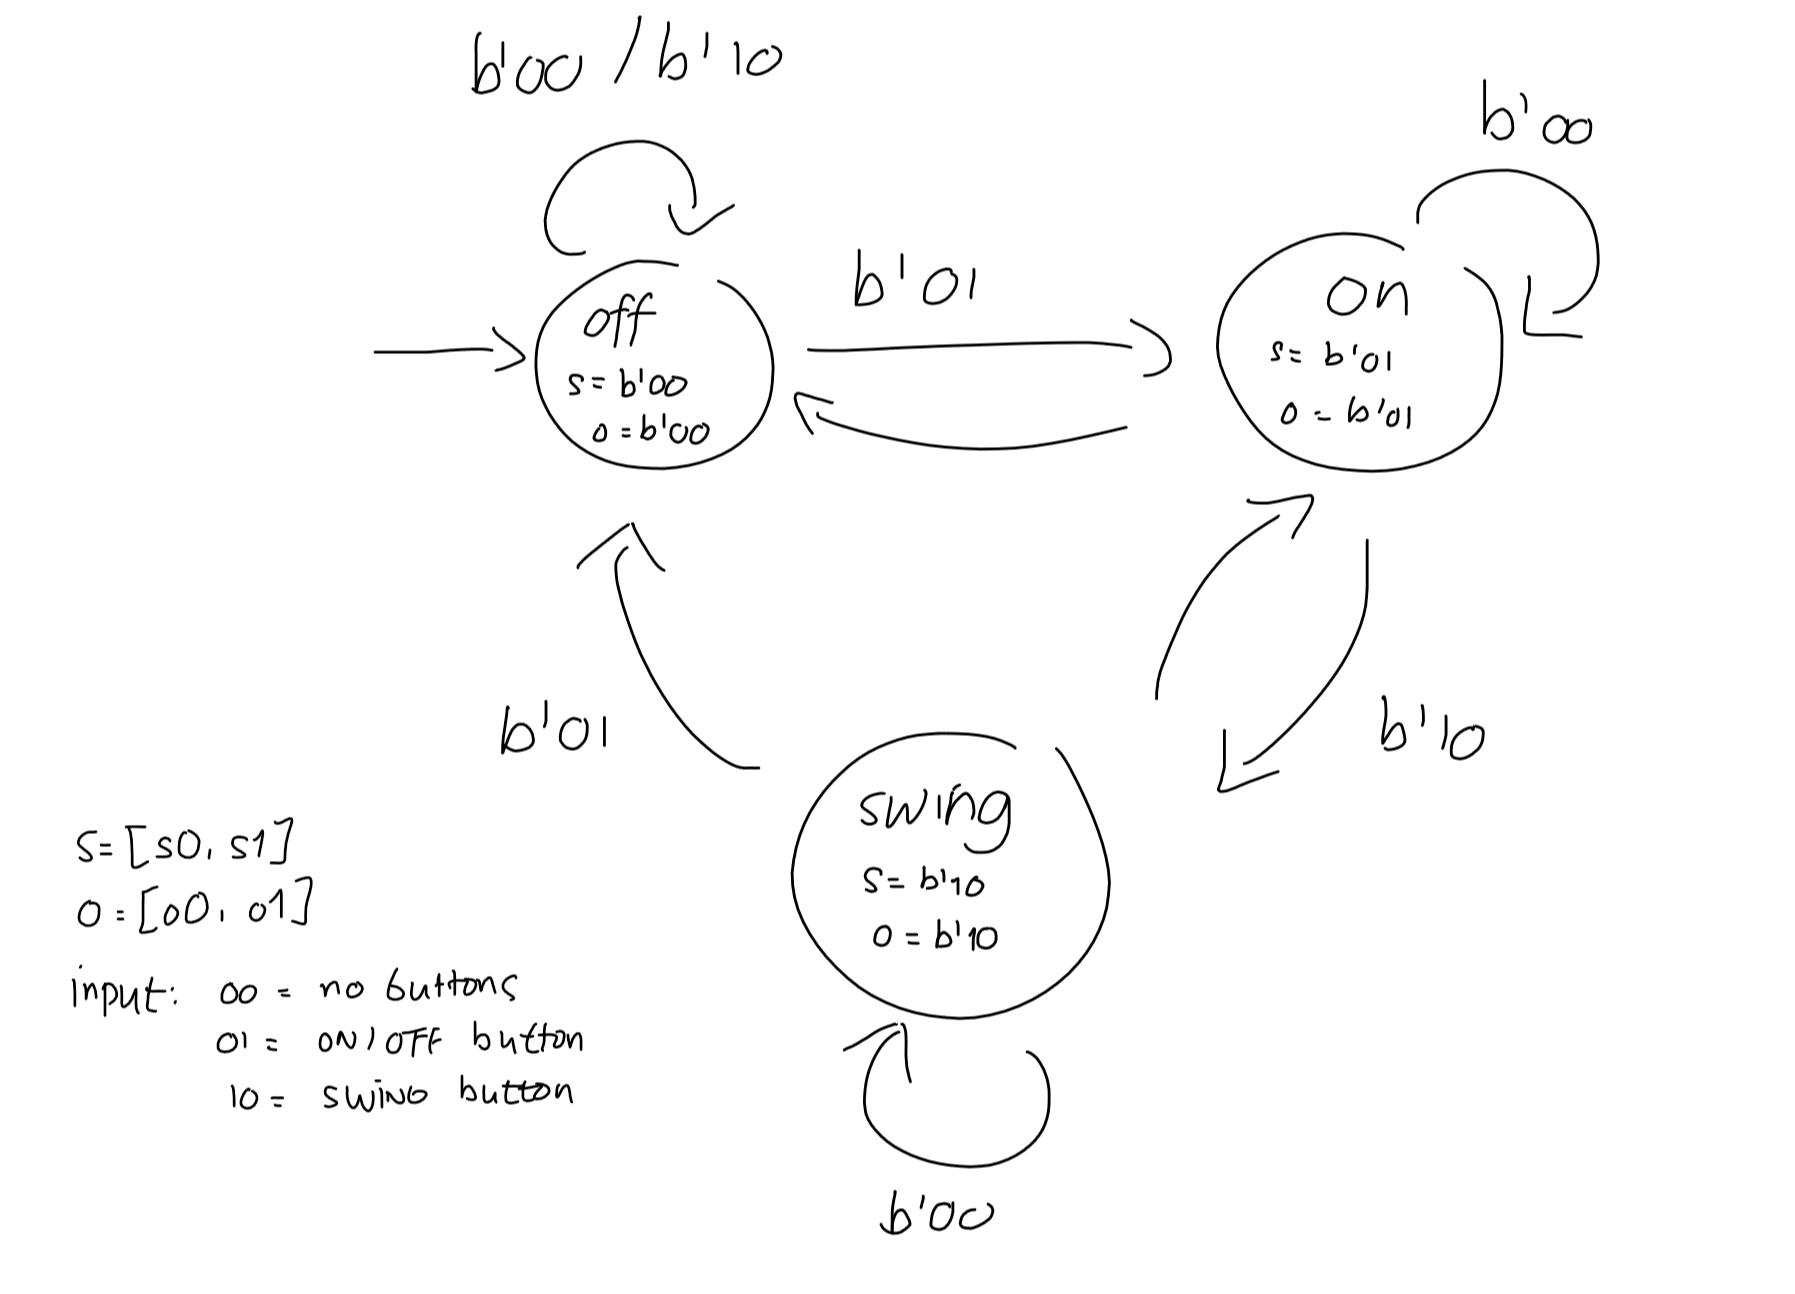 b'00 / b'10
b'00
b'01
off
s= b'00
o = b'00
on
s= b'01
o = b'01
b'01
b'10
swing
S= b'10
o = b'10
S= [s0, s1]
o = [o0, o1]
input: 00 = no buttons
01 = ON/OFF button
10 = SWING button
b'00